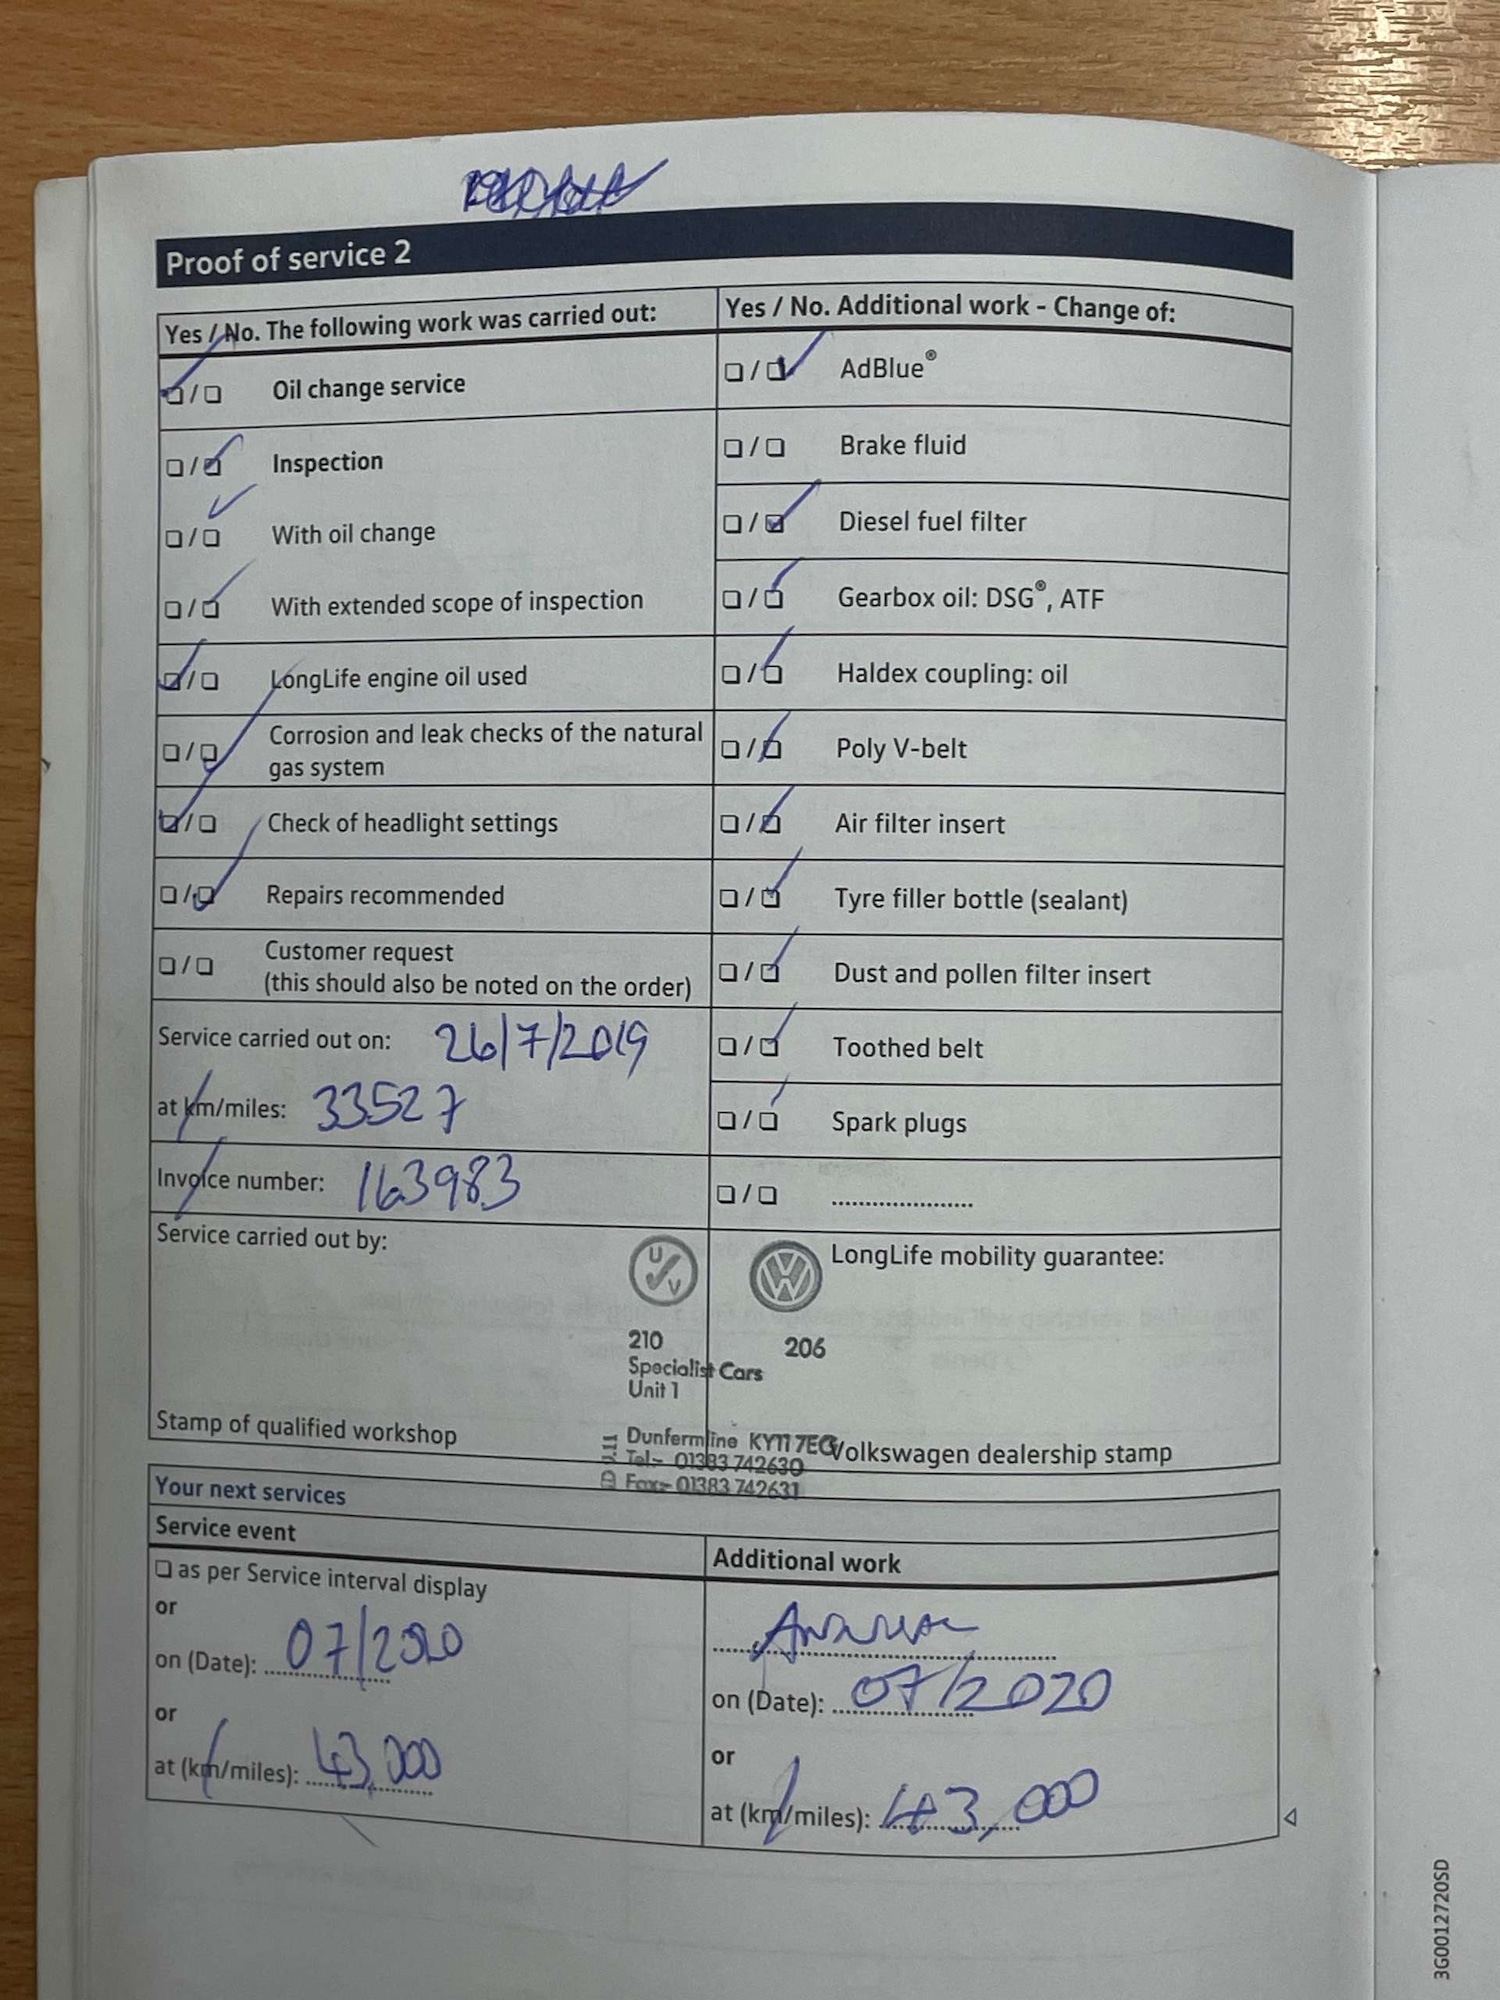 Proof of service 2
Yes / No. The following work was carried out:
❏/❏ Oil change service
❏/❏ Inspection
❏/❏ With oil change
❏/❏ With extended scope of inspection
❏/❏ LongLife engine oil used
❏/❏ Corrosion and leak checks of the natural
gas system
❏/❏ Check of headlight settings
❏/❏ Repairs recommended
❏/❏ Customer request
(this should also be noted on the order)
Service carried out on: 26/7/2019
at km/miles: 33527
Invoice number: 163983
Service carried out by:
Stamp of qualified workshop
Yes / No. Additional work - Change of:
❏/❏ AdBlue®
❏/❏ Brake fluid
❏/❏ Diesel fuel filter
❏/❏ Gearbox oil: DSG®, ATF
❏/❏ Haldex coupling: oil
❏/❏ Poly V-belt
❏/❏ Air filter insert
❏/❏ Tyre filler bottle (sealant)
❏/❏ Dust and pollen filter insert
❏/❏ Toothed belt
❏/❏ Spark plugs
❏/❏ .....................
LongLife mobility guarantee:
Volkswagen dealership stamp
UV
VW
210 206
Specialist Cars
Unit 1
Dunfermline KY11 7EG
Tel:- 01383 742630
Fax:- 01383 742631
Your next services
Service event
❏ as per Service interval display
or
on (Date): 07/2020
or
at (km/miles): 43,000
Additional work
on (Date): 07/2020
or
at (km/miles): 43,000
3G0012720SD